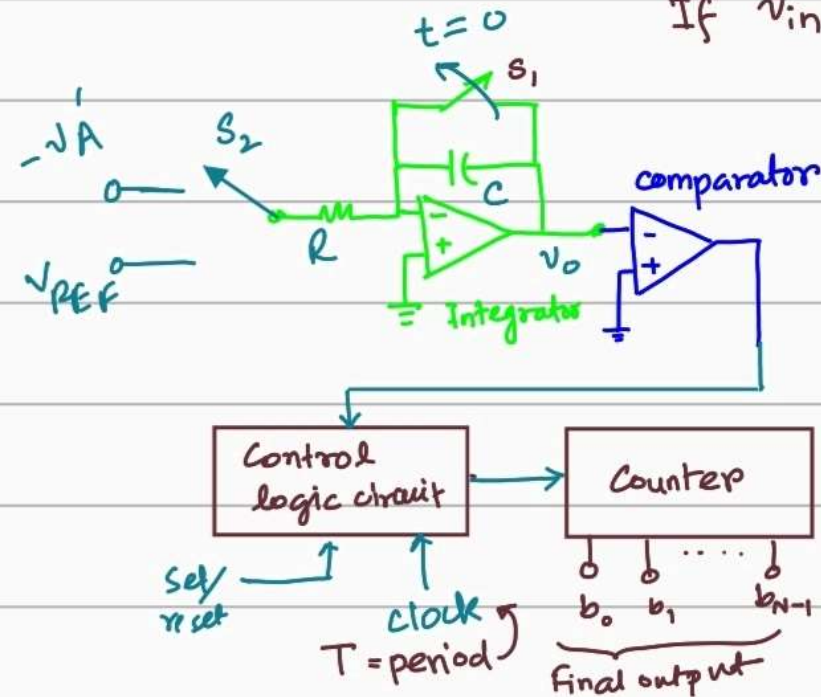 If Vin
t = 0
S1
-VA'
S2
C
R
VREF
- +
V0
Integrator
comparator
- +
Control
logic circuit
Counter
set/
reset
clock
T = period
b0 b1 ..... bN-1
Final output